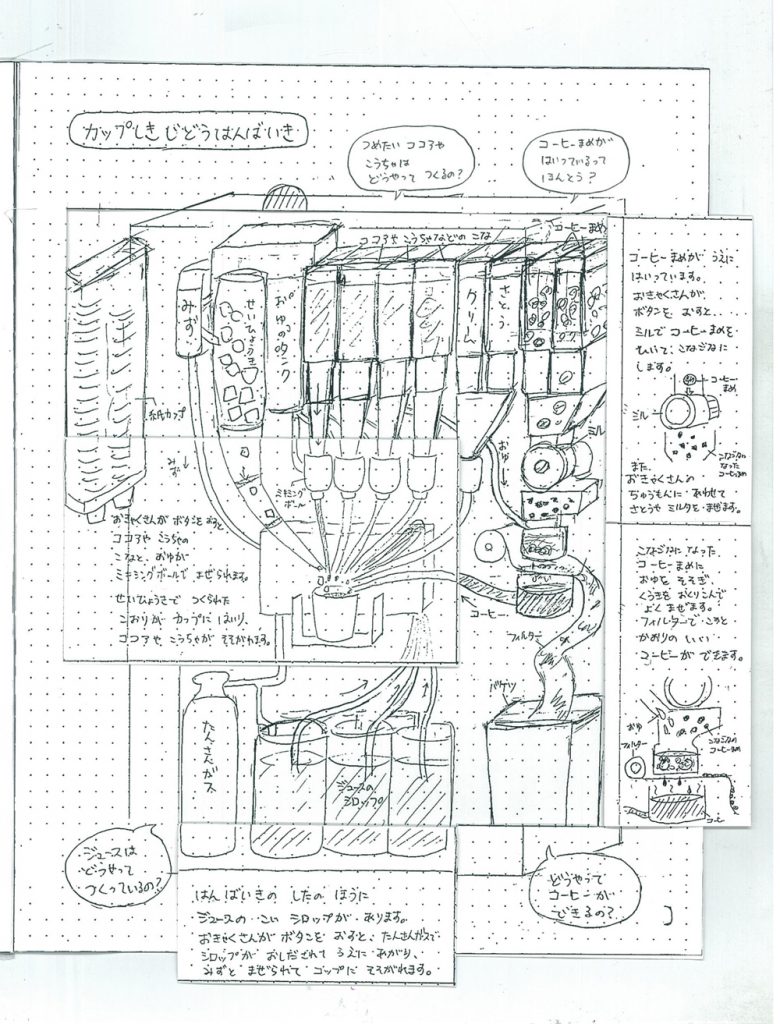 カップしき じどうはんばいき
つめたい ココアや
こうちゃは
どうやって つくるの?
コーヒーまめが
はいっているって
ほんとう?
ココアや こうちゃなどの こな
コーヒーまめ
みず
せいひょうき
おゆのタンク
クリーム
さとう
紙カップ
みず
ミキシング
ボール
おゆ
ミル
コーヒー
フィルター
バケツ
おきゃくさんが ボタンを おすと
ココアや こうちゃの
こなと、おゆが
ミキシングボールで まぜられます。
せいひょうきで つくられた
こおりが カップに はいり、
ココアや こうちゃが そそがれます。
コーヒーまめが うえに
はいっています。
おきゃくさんが
ボタンを おすと、
ミルで コーヒーまめを
ひいて、こなごなに
します。
コーヒー
まめ
ミル
こなごなに
なった
コーヒーまめ
また、
おきゃくさんの
ちゅうもんに あわせて
さとうや ミルクを まぜます。
こなごなに なった
コーヒーまめに
おゆを そそぎ、
くうきを おくりこんで
よく まぜます。
フィルターで こすと
かおりの いい
コーヒーが できます。
おゆ
フィルター
こなごなの
コーヒーまめ
たんさんガス
ジュースの
シロップ
ジュースは
どうやって
つくっているの?
どうやって
コーヒーが
できるの?
はんばいきの したの ほうに
ジュースの こい シロップが あります。
おきゃくさんが ボタンを おすと、たんさんガスで
シロップが おしだされて うえに あがり、
みずと まぜられて コップに そそがれます。